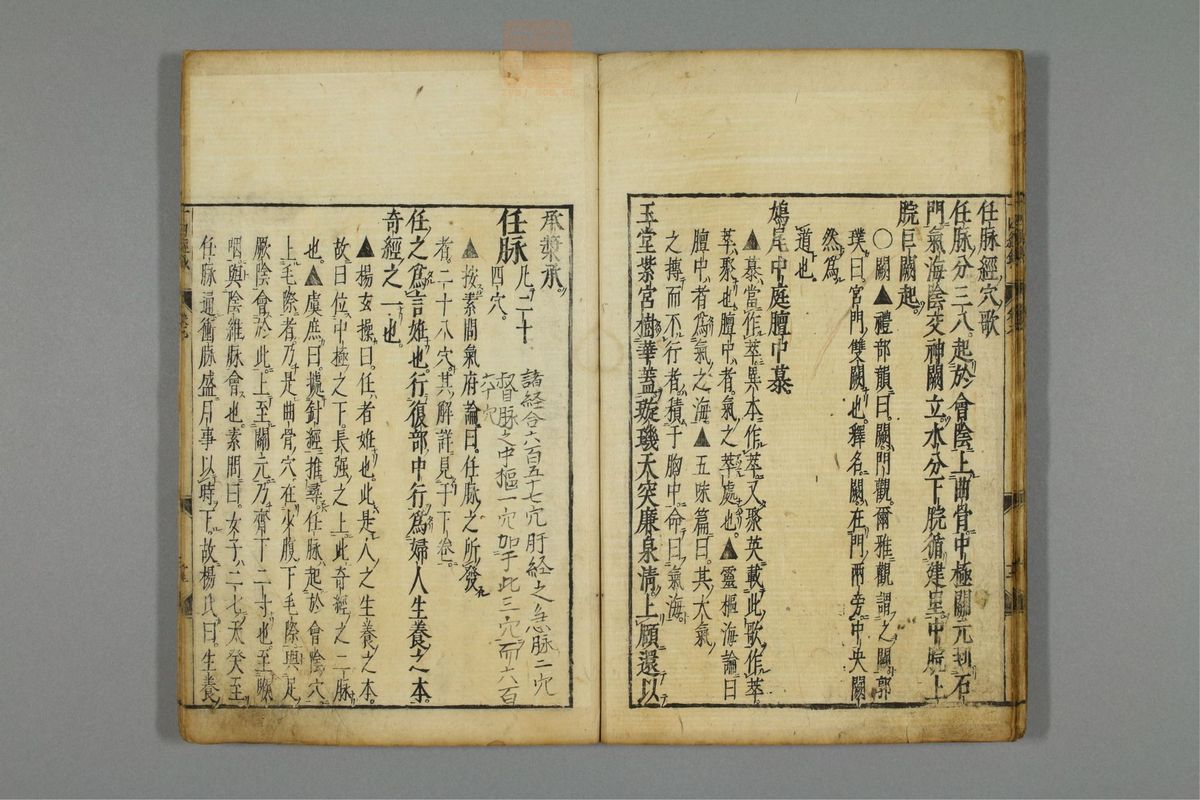 任脉經穴歌
任脉分三八起於會陰上曲骨中極關元到石
門氣海陰交神闕立水分下脘循建里中脘上
脘巨闕起
○闕▲禮部韻曰闕門觀爾雅觀謂之闕郭
璞曰宮門雙闕也釋名闕在門兩旁中央闕
然爲
道也
鳩尾中庭膻中慕
▲慕當作萃異本作萃又聚英載此歌作萃
萃聚也膻中者氣之萃處也▲靈樞海論曰
膻中者爲氣之海▲五味篇曰其大氣
之摶而不行者積于胸中命曰氣海
玉堂紫宮樹華蓋璇璣天突廉泉清上頤還以
承漿承
任脉凡二十四穴
諸経合六百五十七穴肝経之急脉二穴
督脉之中樞一穴加于此三穴而六百
六十穴
▲按素問氣府論曰任脉之所發
者二十八穴其解詳見于下卷
任之爲言妊也行腹部中行爲婦人生養之本
奇經之一也
▲楊玄操曰任者妊也此是人之生養之本
故曰位中極之下長强之上此奇經之二脉
也▲虞庶曰據針經推尋任脉起於會陰穴
上毛際者乃是曲骨穴在少腹下毛際與足
厥陰會於此上至關元乃齊下三寸也至喉
咽與陰維脉會也素問曰女子二七天癸至
任脉通衝脉盛月事以時下故楊氏曰生養